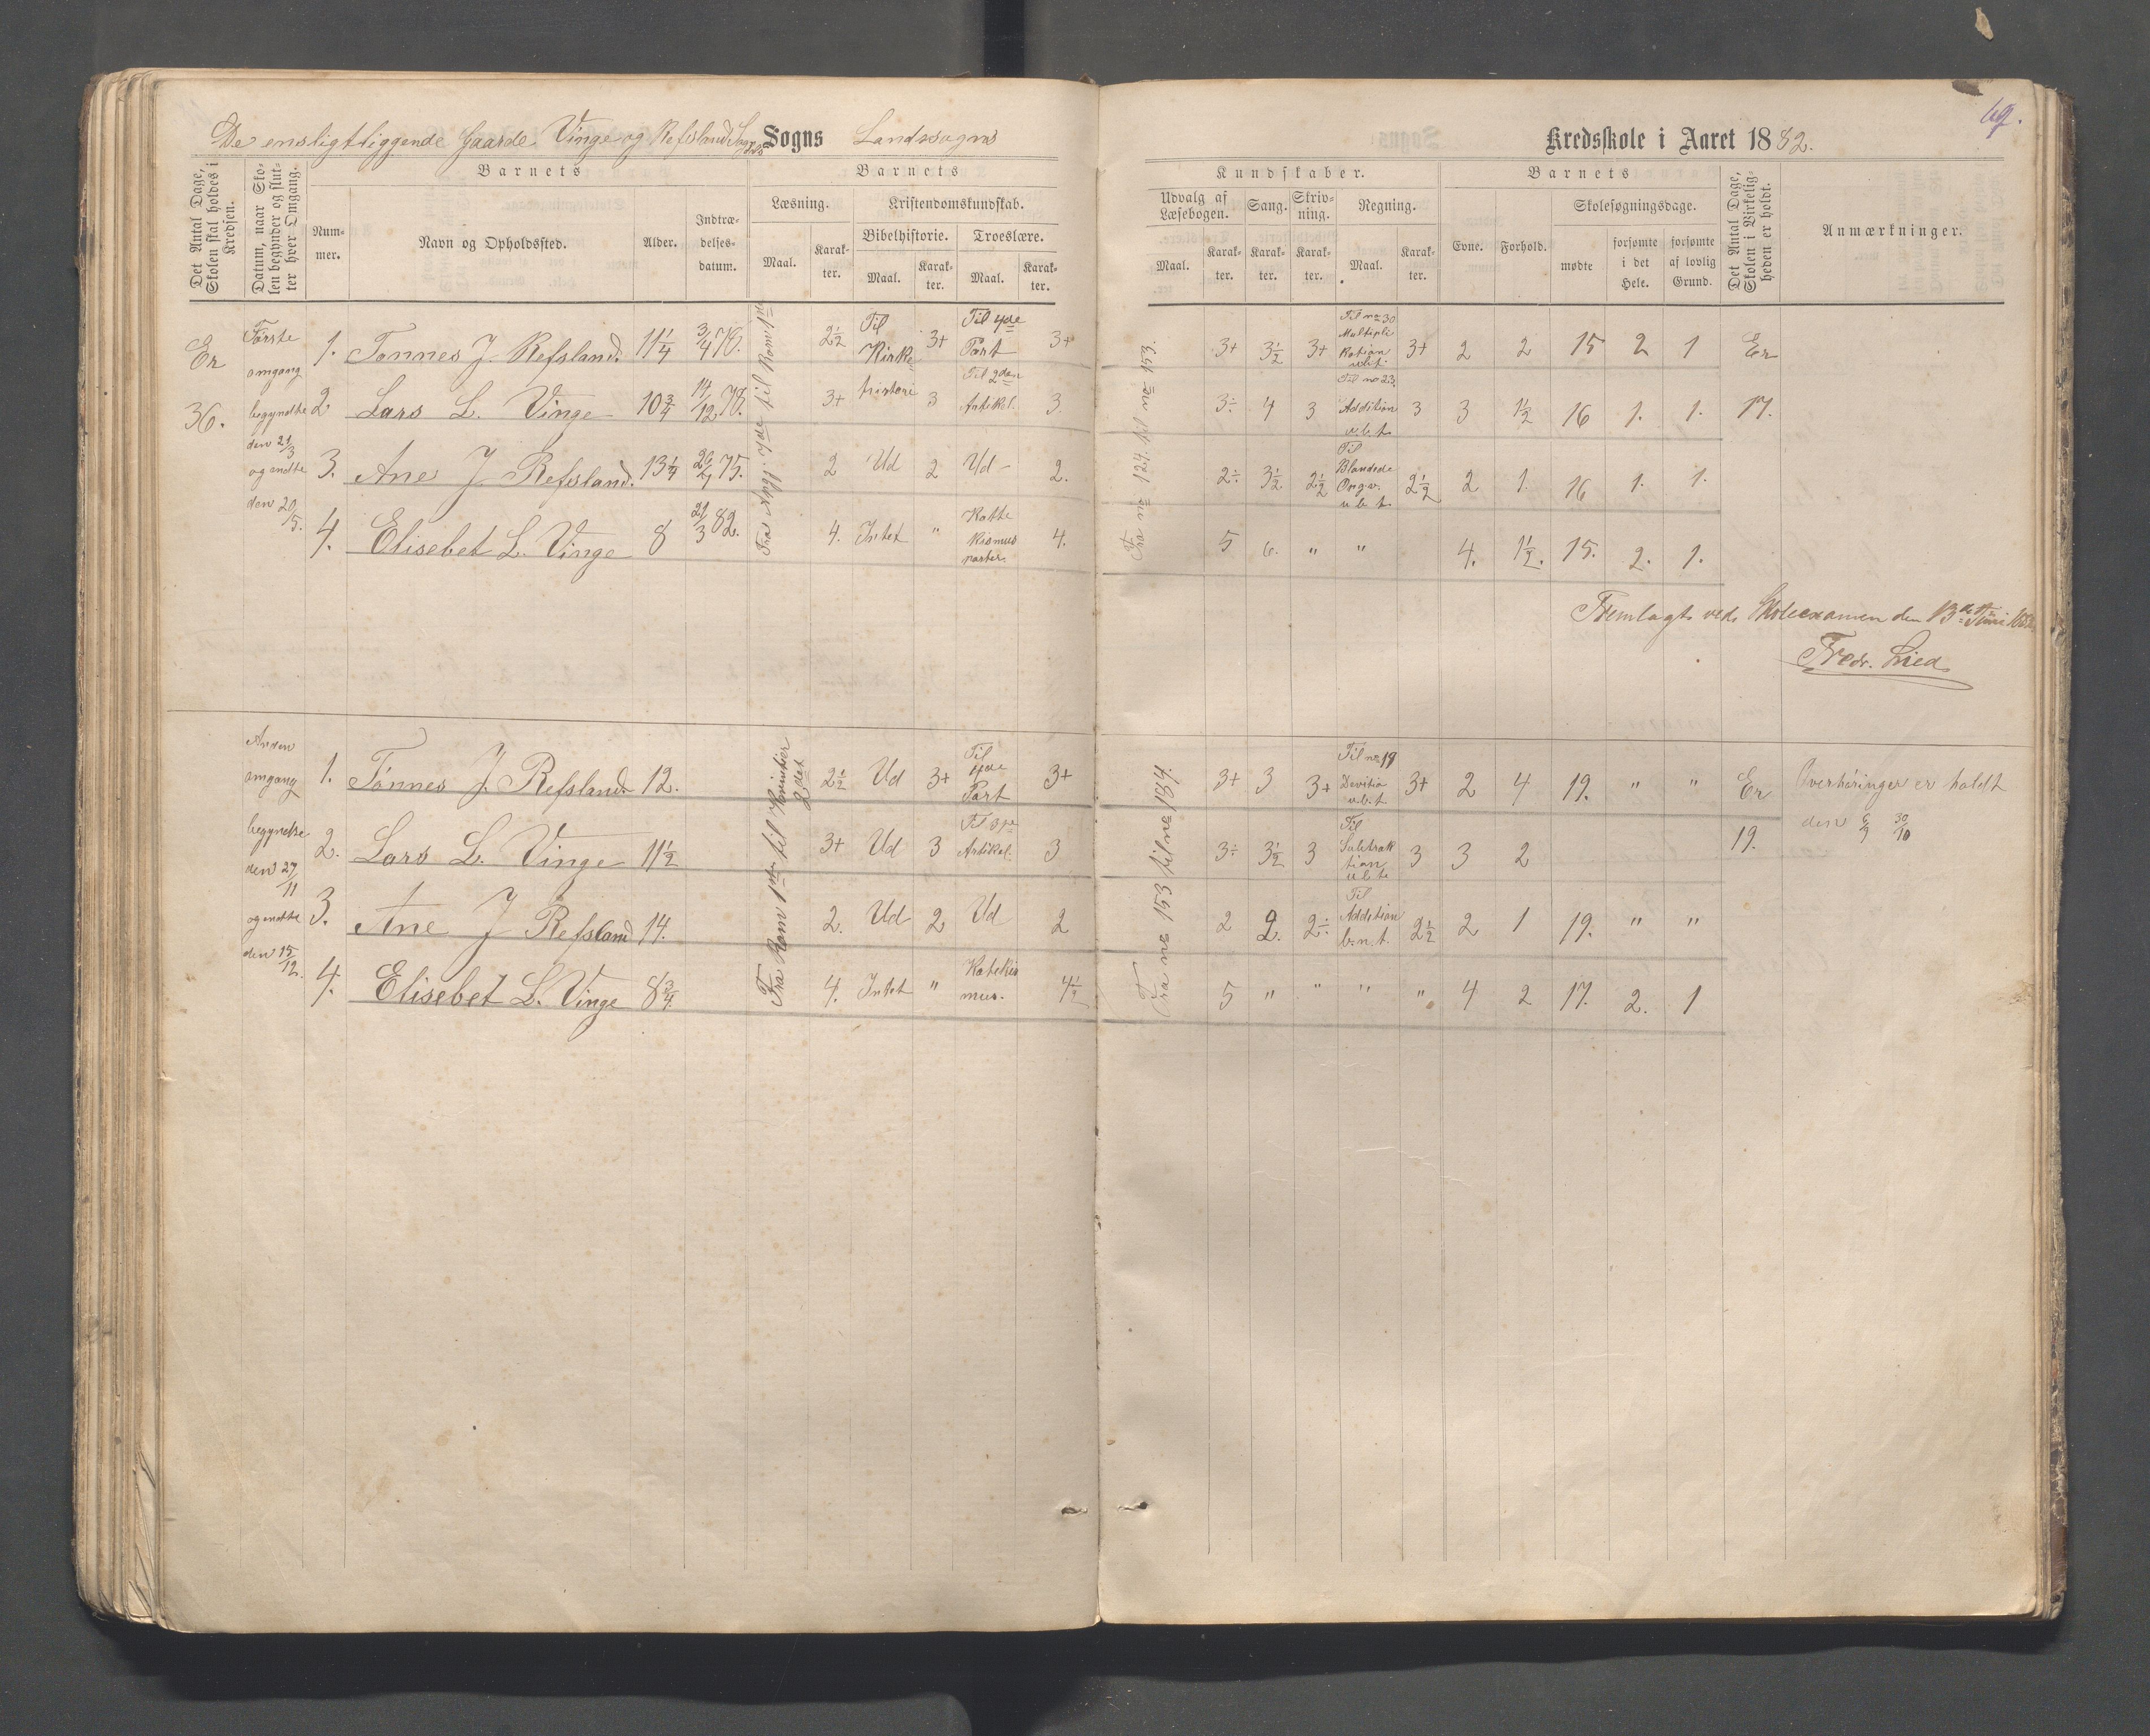 De ensligtliggende Gaarde Vinge og Refsland Sogns Landssogns
Kredsskole i Aaret 1882.
69.
Det Antal Dage, Skolen skal holdes i Kredsen.
Datum, naar Skolen begynder og slutter hver Omgang.
Barnets
Nummer.
Navn og Opholdssted.
Alder.
Indtrædelsesdatum.
Barnets
Læsning.
Maal.
Karakter.
Kristendomskundskab.
Bibelhistorie.
Maal.
Karakter.
Troeslære.
Maal.
Karakter.
Kundskaber.
Udvalg af Læsebogen.
Maal.
Karakter.
Sang.
Karakter.
Skrivning.
Karakter.
Regning.
Maal.
Karakter.
Barnets
Evne.
Forhold.
Skolesøgningsdage.
mødte
forsømte i det Hele.
forsømte af lovlig Grund.
Det Antal Dage, Skolen i Virkeligheden er holdt.
Anmærkninger.
Er
36.
Første omgang begyndte den 21/3 og endte den 20/5.
Til Rom. 1ste
Fra no 124 til no 153.
1. Tønnes J. Refsland. 11 1/4 3/4 78. 2 1/2 Til Kirke 3+ Til 4de Part 3+ 3+ 3 1/2 3+ Til no 30 Multiplikation u.b.t. 3+ 2 2 15 2 1 Er
2 Lars L. Vinge 10 3/4 14/12 78. 3+ histori 3 Til 2den Artikel. 3. 3÷ 4 3 Til no 23. Addition u.b.t. 3 3 1 1/2 16 1. 1. 17.
3. Ane J. Refsland. 13 1/4 75. 2 Ud 2 Ud 2. 2÷ 3 1/2 2 1/2 Til Blandede Opgv. u.b.t. 2 1/2 2 1. 16 1. 1.
4. Elisebet L. Vinge 8 21/3 82. 4. Intet " Kattekismus parter. 4. 5 6. " " 4. 1 1/2. 15. 2. 1.
Fremlagt ved Skoleexamen den 13de Juni 1882
Fredr. Lied
Anden omgang begyndte den 27/11 og endte den 15/12.
Fra Rom 1ste til Korintier 2det
Fra no 153 til no 184.
1. Tønnes J. Refsland 12. 2 1/2 Ud 3+ Til 4de Part 3+ 3+ 3 3+ Til no 19 Devition u.b.t. 3+ 2 4 19. " " Er Overhøringer er holdt
2. Lars L. Vinge 11 1/2 3+ Ud 3 Til 3je Artikel. 3 3÷ 3 1/2 3 Til Subtraktion u.b.t. 3 3 2 19. den 30/10
3. Ane J Refsland 14. 2. Ud 2 Ud 2 2 2. 2÷ Til Addition b.n.t. 2 1/2 2 1 19. " "
4. Elisebet L. Vinge 8 3/4. 4. Intet " Katekismus. 4 1/2 5 " " " " 4 2 17. 2. 1